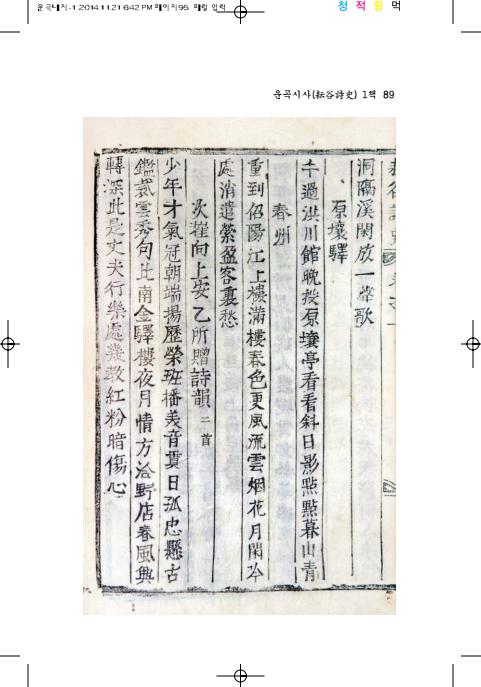 운곡내지-1 2014.11.21 6:42 PM 페이지95 매킬 입력
청 적 황 먹
운곡시사(耘谷詩史) 1책 89
洞隔溪閑放一聲歌
原壤驛
午過洪川館晚投原壤亭看看斜日影點點暮山青
春州
重到佋陽江上樓滿樓春色更風流雲烟花月閑吟
處消遣縈盈客裏愁
次崔向上安乙所贈詩韻 二首
少年才氣冠朝端揚歷榮班播美音貫日孤忠懸古
鑑裁雲秀句比南金驛樓夜月情方洽野店春風興
轉深此是丈夫行樂處幾教紅粉暗傷心